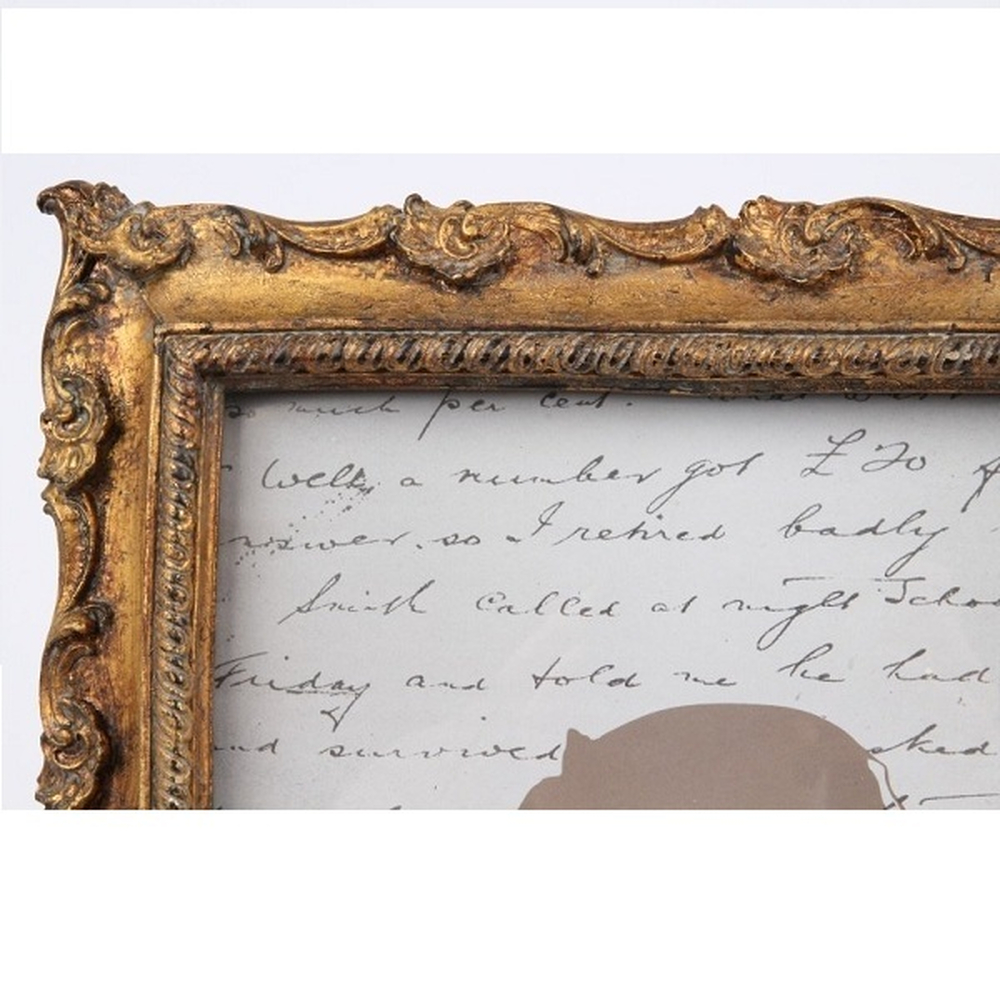 so much per cent.
Well, a number got £20
answer, so I retired badly
Smith called at night
Friday and told me he had
and survived